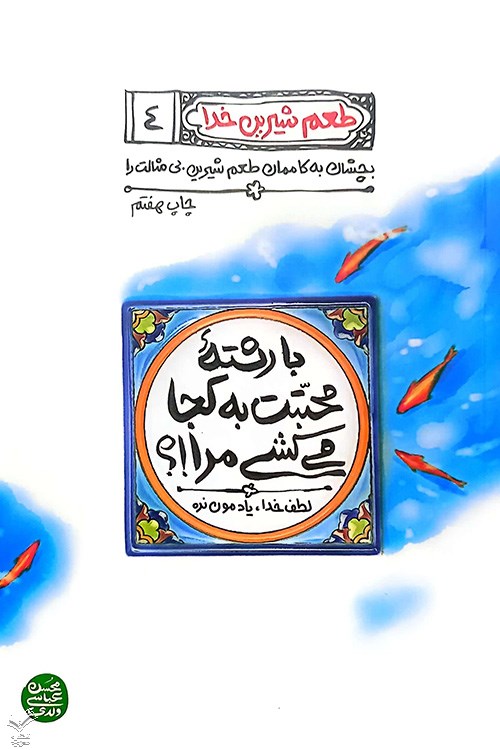 طعم شیرین خدا
٤
بچشان به کاممان طعم شیرین بی مثالت را
چاپ هفتم
با رشتهٔ
محبّتت به کجا
می کشی مرا!؟
لطف خدا، یادمون نره
محسن
عباسی
ولدی